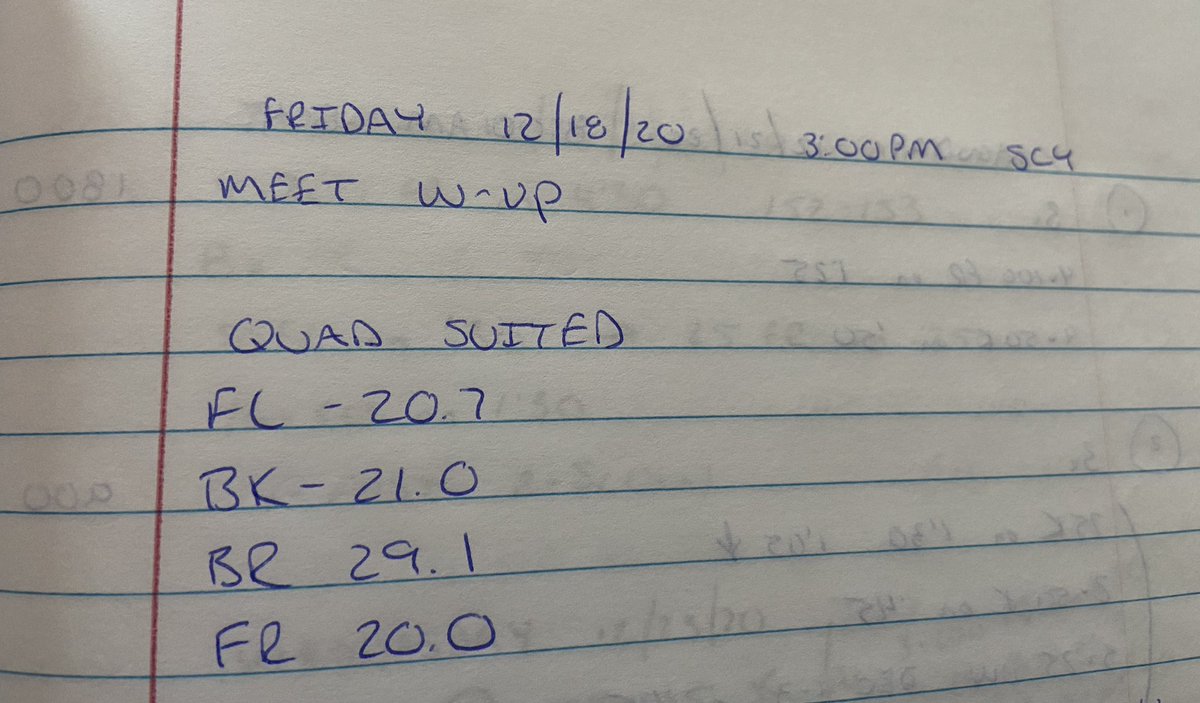 FRIDAY 12/18/20 3:00PM SCY
MEET W-UP
QUAD SUITED
FL - 20.7
BK - 21.0
BR 29.1
FR 20.0